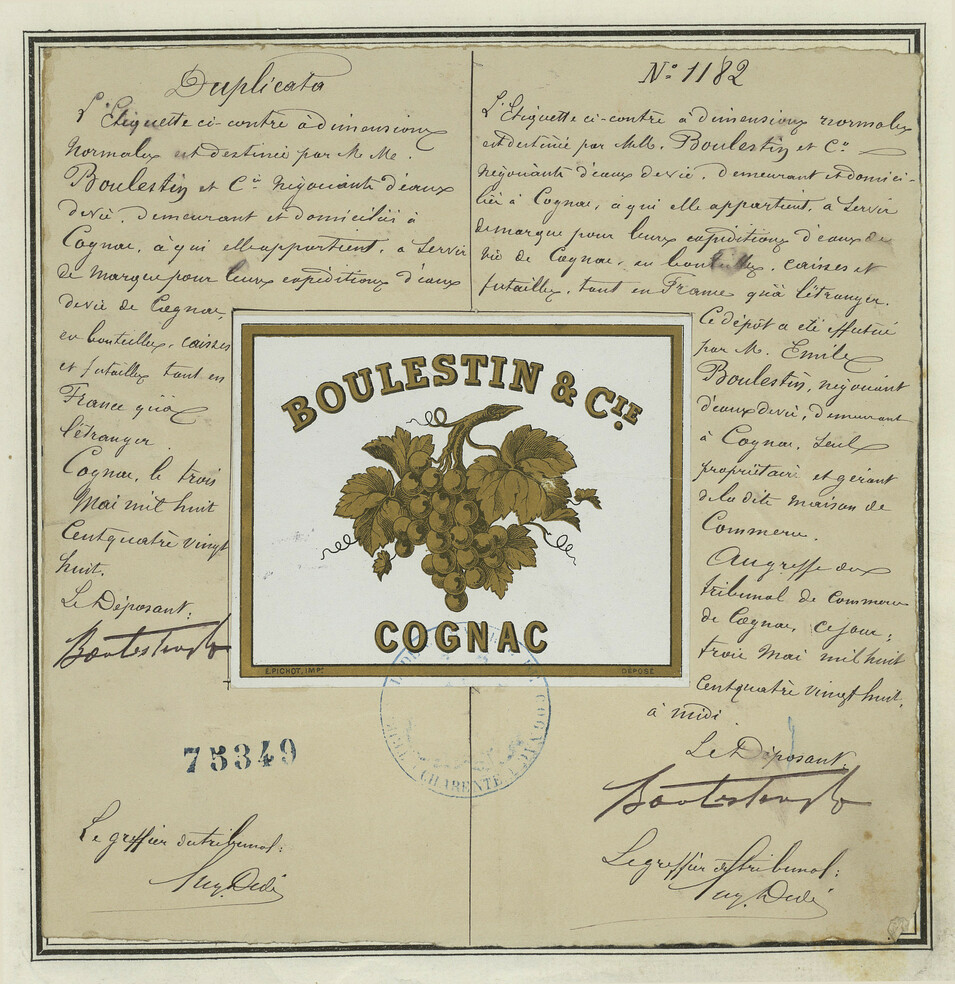 Duplicata
L'Etiquette ci-contre à dimensions
normales est destinée par M. Me.
Boulestin et Cie négociants d'eaux
devie, demeurant et domiciliés à
Cognac, à qui elle appartient, a servir
de marque pour leurs expéditions d'eaux
devie de Cognac,
en bouteilles, caisses
et futailles tant en
France qu'à
l'étranger
Cognac, le trois
Mai mil huit
Cent quatre vingt
huit.
Le Déposant:
75349
Le greffier du tribunal:
N° 1182
L'Etiquette ci-contre à dimensions normales
est destinée par MM. Boulestin et Cie
négociants d'eaux devie, demeurant et domici-
liés à Cognac, à qui elle appartient, a servir
de marque pour leurs expéditions d'eaux de
vie de Cognac, en bouteilles, caisses et
futailles, tant en France qu'à l'étranger.
Ce dépôt a été effectué
par M. Emile
Boulestin, négociant
d'eaux devie, demeurant
à Cognac, seul
propriétaire et gérant
de la dite maison de
Commerce.
Au greffe du
tribunal de Commerce
de Cognac, ce jour,
trois Mai mil huit
Cent quatre vingt huit,
à midi.
Le Déposant:
Le greffier du tribunal:
BOULESTIN & CIE
COGNAC
E. PICHOT, IMP.
DÉPOSÉ
COGNAC
CHARENTE